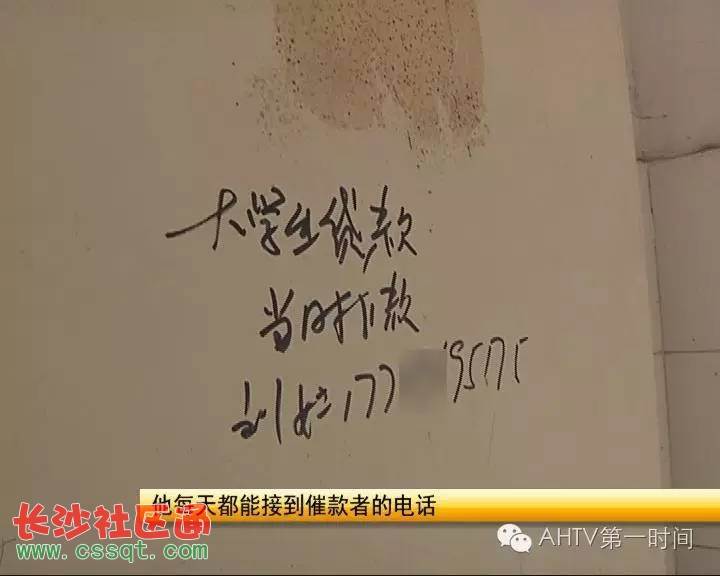 大学生贷款
当时打款
刘姐177 95175
他每天都能接到催款者的电话
长沙社区通
www.cssqt.com
AHTV第一时间